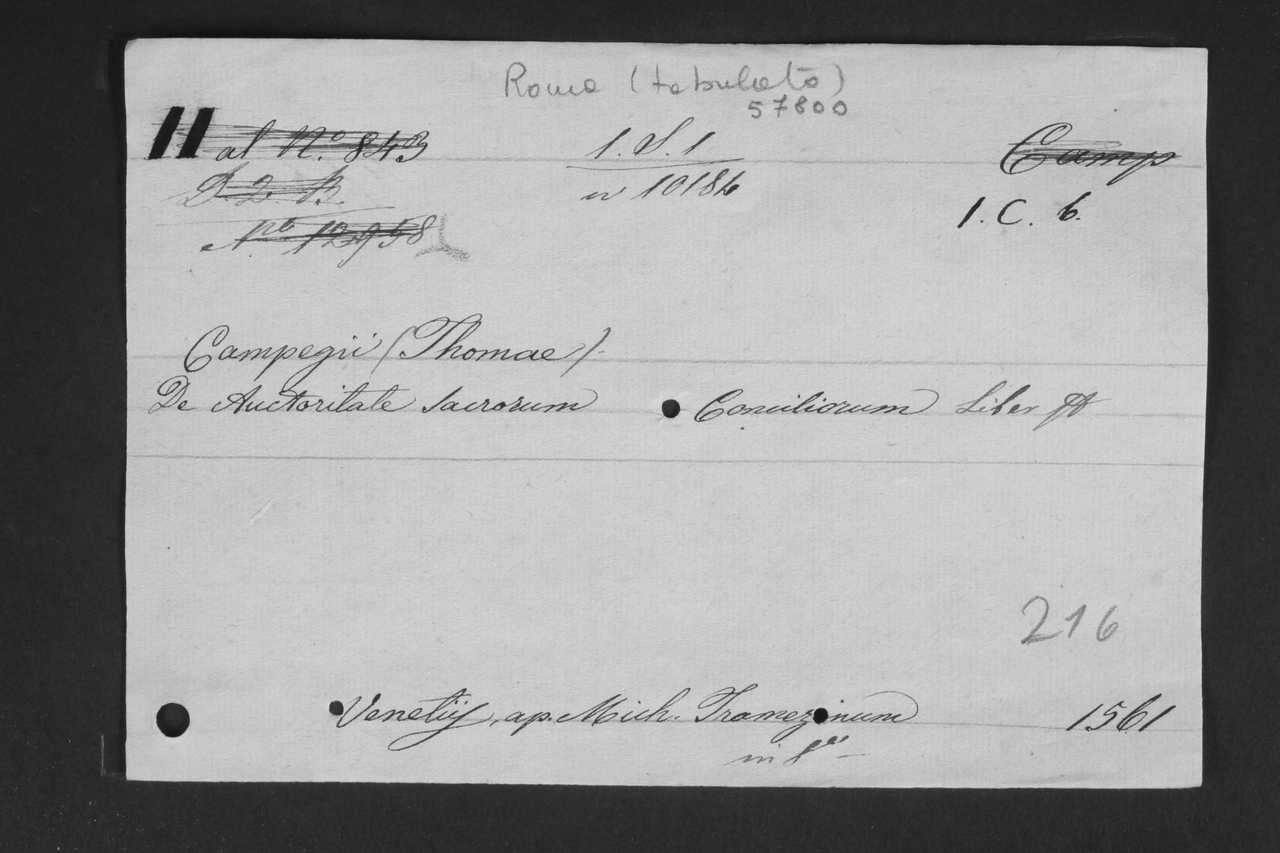 Roma (tabulato)
57800
al N.º 843
1. S. 1
Camp
D. 2. B.
n 10186
1. C. 6.
N.ro 12958
Campegii (Thomae).
De Auctoritate sacrorum Conciliorum Liber
216
Venetijs, ap. Mich. Tramezinum 1561
in 8º